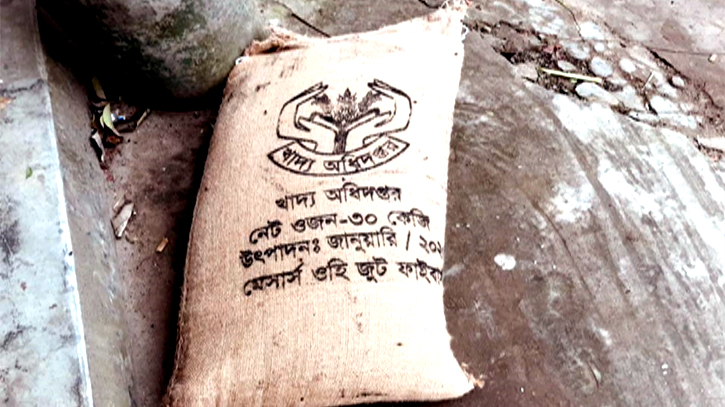 খাদ্য অধিদপ্তর
খাদ্য অধিদপ্তর
নেট ওজন-৩০ কেজি
উৎপাদনঃ জানুয়ারি /
মেসার্স ওহি জুট